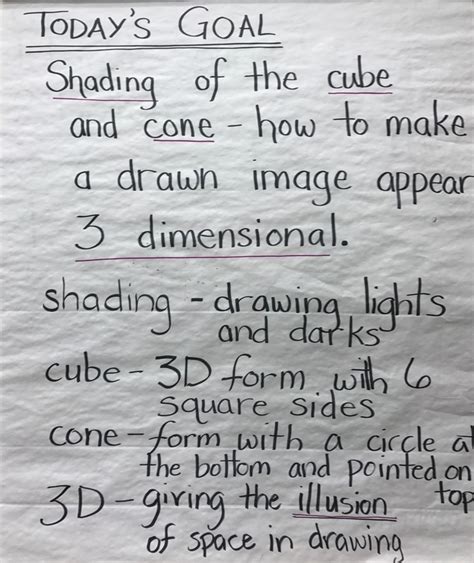 TODAY'S GOAL
Shading of the cube
and cone - how to make
a drawn image appear
3 dimensional.
shading - drawing lights
and darks
cube - 3D form with 6
square sides
cone - form with a circle at
the bottom and pointed on
top
3D - giving the illusion
of space in drawing